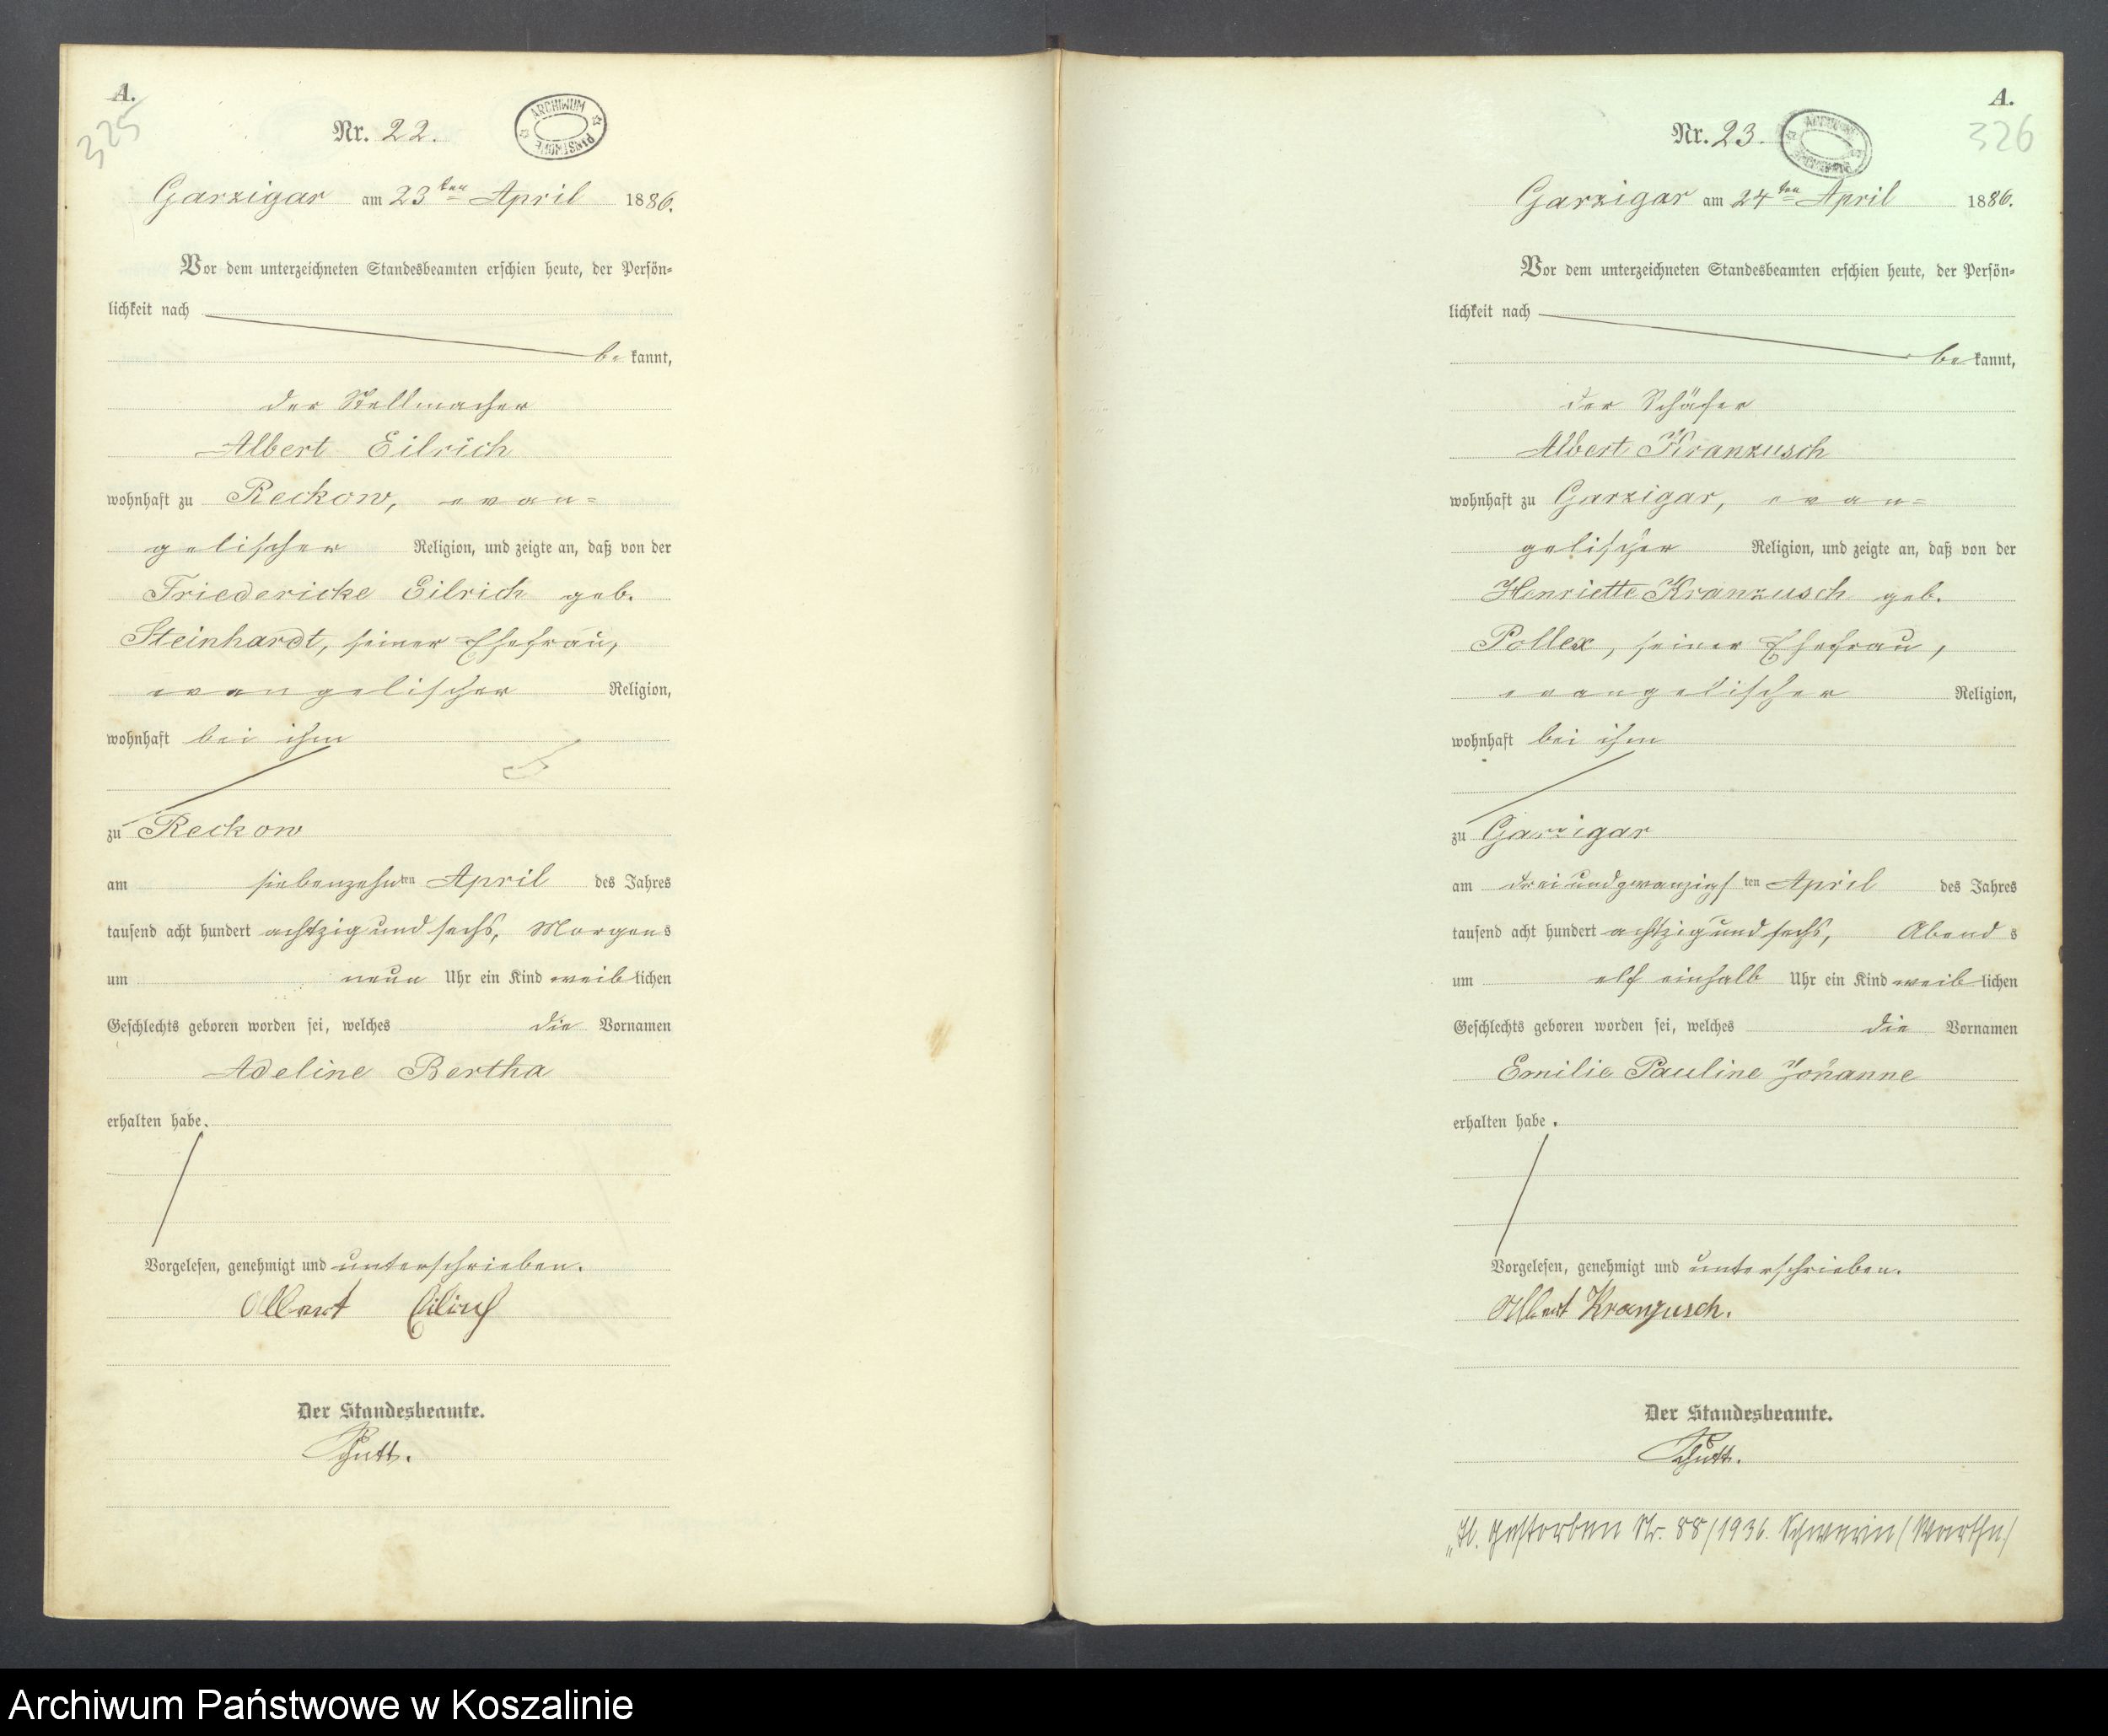 A.
325
Nr. 22.
ARCHIWUM PAŃSTWOWE
Garzigar am 23ten April 1886.
Vor dem unterzeichneten Standesbeamten erschien heute, der Persön=
lichkeit nach
be kannt,
der Stellmacher
Albert Eilrich
wohnhaft zu Reckow, evan=
gelischer Religion, und zeigte an, daß von der
Friedericke Eilrich geb.
Steinhardt, seiner Ehefrau,
evangelischer Religion,
wohnhaft bei ihm
zu Reckow
am siebenzehnten April des Jahres
tausend acht hundert achtzig und sechs, Morgens
um neun Uhr ein Kind weiblichen
Geschlechts geboren worden sei, welches die Vornamen
Adeline Bertha
erhalten habe.
Vorgelesen, genehmigt und unterschrieben.
Albert Eilrich
Der Standesbeamte.
A.
326
Nr. 23.
Garzigar am 24ten April 1886.
Vor dem unterzeichneten Standesbeamten erschien heute, der Persön=
lichkeit nach
be kannt,
der Schäfer
Albert Kranzusch
wohnhaft zu Garzigar, evan=
gelischer Religion, und zeigte an, daß von der
Henriette Kranzusch geb.
Pollex, seiner Ehefrau,
evangelischer Religion,
wohnhaft bei ihm
zu Garzigar
am dreiundzwanzigsten April des Jahres
tausend acht hundert achtzig und sechs, Abends
um elf einhalb Uhr ein Kind weiblichen
Geschlechts geboren worden sei, welches die Vornamen
Emilie Pauline Johanne
erhalten habe.
Vorgelesen, genehmigt und unterschrieben.
Albert Kranzusch.
Der Standesbeamte.
gestorben Nr. 88/1936. Schwerin/Warthe/
Archiwum Państwowe w Koszalinie